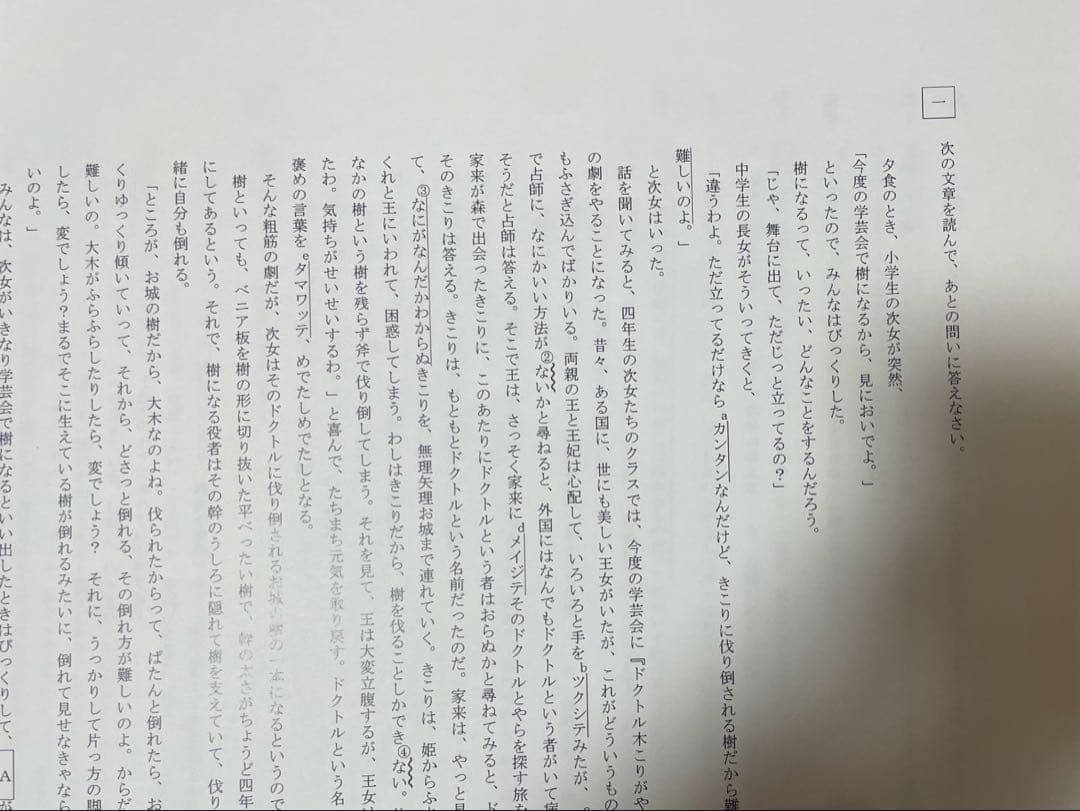 一
次の文章を読んで、あとの問いに答えなさい。
夕食のとき、小学生の次女が突然、
「今度の学芸会で樹になるから、見においでよ。」
といったので、みんなはびっくりした。
樹になるって、いったい、どんなことをするんだろう。
「じゃ、舞台に出て、ただじっと立ってるの?」
中学生の長女がそういってきくと、
「違うわよ。ただ立ってるだけならaカンタンなんだけど、きこりに伐り倒される樹だから難
難しいのよ。」
と次女はいった。
話を聞いてみると、四年生の次女たちのクラスでは、今度の学芸会に『ドクトル木こりがや
の劇をやることになった。昔々、ある国に、世にも美しい王女がいたが、これがどういうもの
もふさぎ込んでばかりいる。両親の王と王妃は心配して、いろいろと手をbツクシテみたが、
で占師に、なにかいい方法が②ないかと尋ねると、外国にはなんでもドクトルという者がいて病
そうだと占師は答える。そこで王は、さっそく家来にdメイジテそのドクトルとやらを探す旅を
家来が森で出会ったきこりに、このあたりにドクトルという者はおらぬかと尋ねてみると、ド
そのきこりは答える。きこりは、もともとドクトルという名前だったのだ。家来は、やっと見
て、③なにがなんだかわからぬきこりを、無理矢理お城まで連れていく。きこりは、姫からふ
くれと王にいわれて、困惑してしまう。わしはきこりだから、樹を伐ることしかでき④ない。
なかの樹という樹を残らず斧で伐り倒してしまう。それを見て、王は大変立腹するが、王女は
たわ。気持ちがせいせいするわ。」と喜んで、たちまち元気を取り戻す。ドクトルという名
褒めの言葉をeタマワッテ、めでたしめでたしとなる。
そんな粗筋の劇だが、次女はそのドクトルに伐り倒されるお城の樹の一本になるというので
樹といっても、ベニア板を樹の形に切り抜いた平べったい樹で、幹の太さがちょうど四年
にしてあるという。それで、樹になる役者はその幹のうしろに隠れて樹を支えていて、伐り
緒に自分も倒れる。
「ところが、お城の樹だから、大木なのよね。伐られたからって、ばたんと倒れたら、お
くりゆっくり傾いていって、それから、どさっと倒れる、その倒れ方が難しいのよ。からだ
難しいの。大木がふらふらしたりしたら、変でしょう? それに、うっかりして片っ方の脚
したら、変でしょう?まるでそこに生えている樹が倒れるみたいに、倒れて見せなきゃなら
いのよ。」
みんなは、次女がいきなり学芸会で樹になるといい出したときはびっくりして、Aが